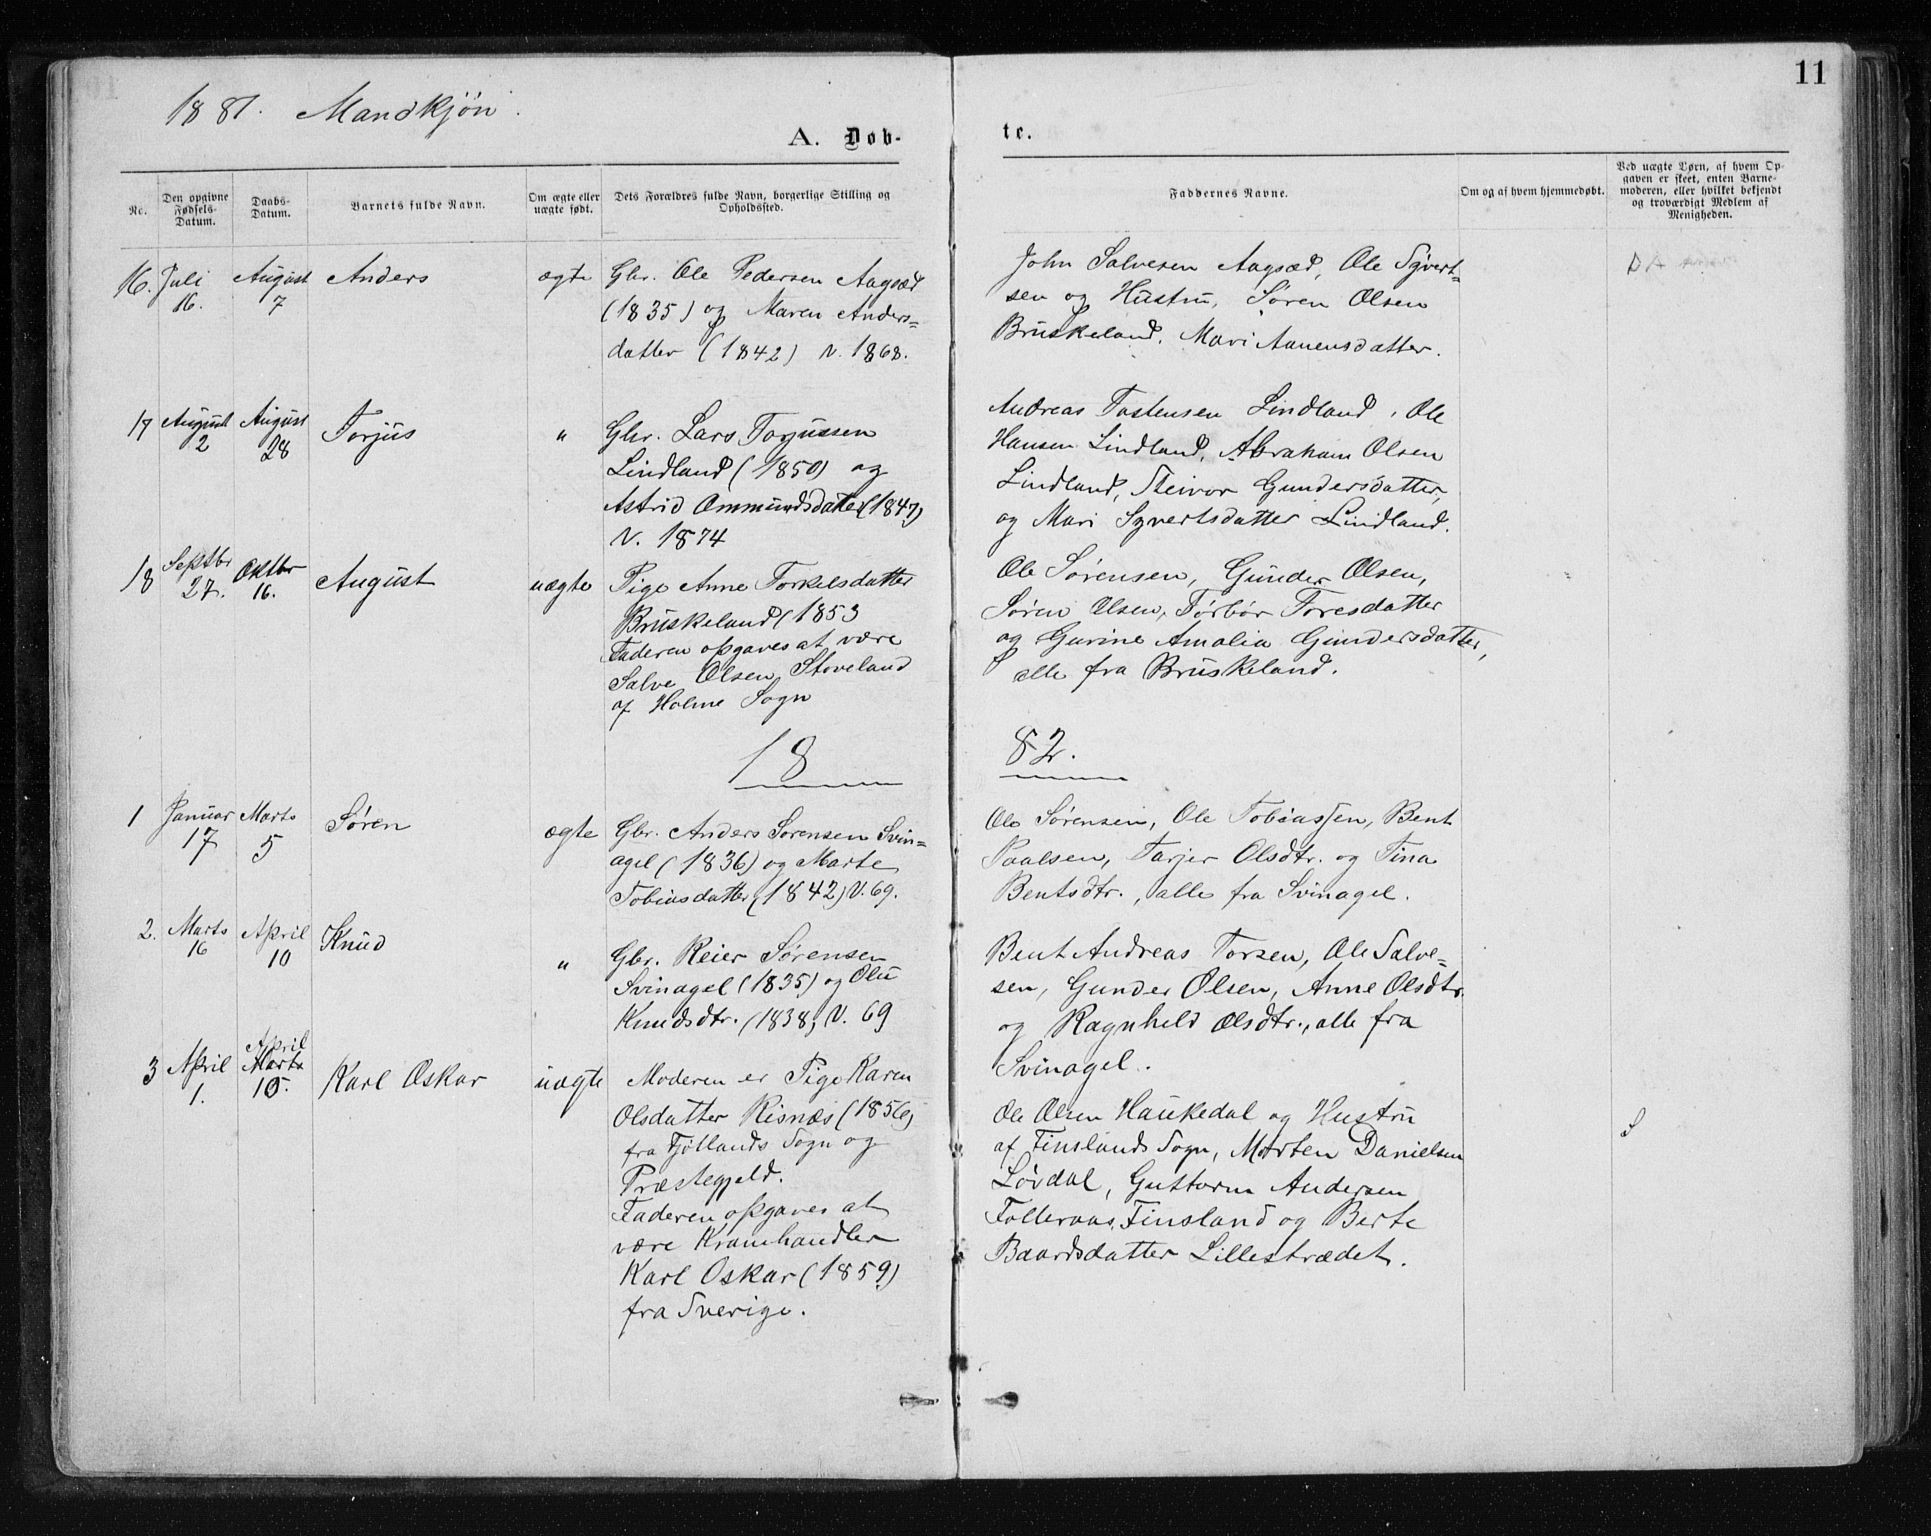 11
1881. Mandkjøn.
A. Døb-
te.
No.
Den opgivne Fødsels-Datum.
Daabs-Datum.
Barnets fulde Navn.
Om ægte eller uægte født.
Dets Forældres fulde Navn, borgerlige Stilling og Opholdssted.
Faddernes Navne.
Om og af hvem hjemmedøbt.
Ved uægte Børn, af hvem Op-
gaven er skeet, enten Barne-
moderen, eller hvilket bekjendt
og troværdigt Medlem af
Menigheden.
16. Juli 16. August 7 Anders ægte
Gbr. Ole Pedersen Aagsæd
(1835) og Maren Anders=
datter (1842) V. 1868.
John Salvesen Aagsæd, Ole Syvert-
sen og Hustru, Søren Olsen
Bruskeland, Mari Aanensdatter.
17 August 2 August 28 Torjus "
Gbr. Lars Torjussen
Lindland (1850) og
Astrid Ommundsdatter (1847)
V. 1874
Andreas Tostensen Lindland, Ole
Hansen Lindland, Abraham Olsen
Lindland, Steivor Gundersdatter,
og Mari Syvertsdatter Lindland.
18 Septbr 27. Oktbr 16. August uægte
Pige Anne Torkelsdatter
Bruskeland (1853
Faderen opgaves at være
Salve Olsen Stoveland
af Holme Sogn
Ole Sørensen, Gunder Olsen,
Søren Olsen, Tørbør Toresdatter
og Gurine Amalia Gundersdatter,
alle fra Bruskeland.
18
82.
1 Januar 17 Marts 5 Søren ægte
Gbr. Anders Sørensen Svin=
agel (1836) og Marte
Tobiasdatter (1842) V. 69.
Ole Sørensen, Ole Tobiassen, Bent
Paalsen, Tarjer Olsdtr. og Tina
Bentsdtr., alle fra Svinagel.
2. Marts 16 April 10 Knud "
Gbr. Reier Sørensen
Svinagel (1835) og Olu
Knudsdtr. (1838) V. 69
Bent Andreas Torsen, Ole Salve=
sen, Gunder Olsen, Anne Olsdtr.
og Ragnhild Olsdtr., alle fra
Svinagel.
3 April 1. April Marts 10. Karl Oskar uægte
Moderen er Pige Karen
Olsdatter Risnæs (1856)
fra Fjotlands Sogn og
Præstegjeld.
Faderen opgaves at
være Kramhandler
Karl Oskar (1859)
fra Sverige.
Ole Olsen Haukedal og Hustru
af Finslands Sogn, Morten Danielsen
Løvdal, Guttorm Andersen
Folleraas, Finsland og Berte
Baardsdatter Lillestrædet.